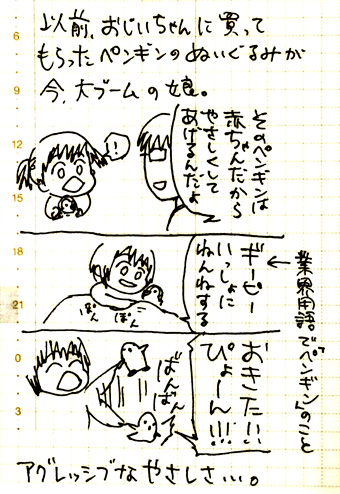 以前、おじいちゃんに買って
もらったペンギンのぬいぐるみが
今、大ブームの娘。
そのペンギンは
赤ちゃんだから
やさしくして
あげるんだよ
!
6
9
12
15
18
21
0
3
ギーピー
いっしょに
ねんねする
←業界用語。
で「ペンギン」のこと
ぽん
ぽん
おきた!!
ぴょーん!!!
ばんばん
アグレッシブなやさしさ…。